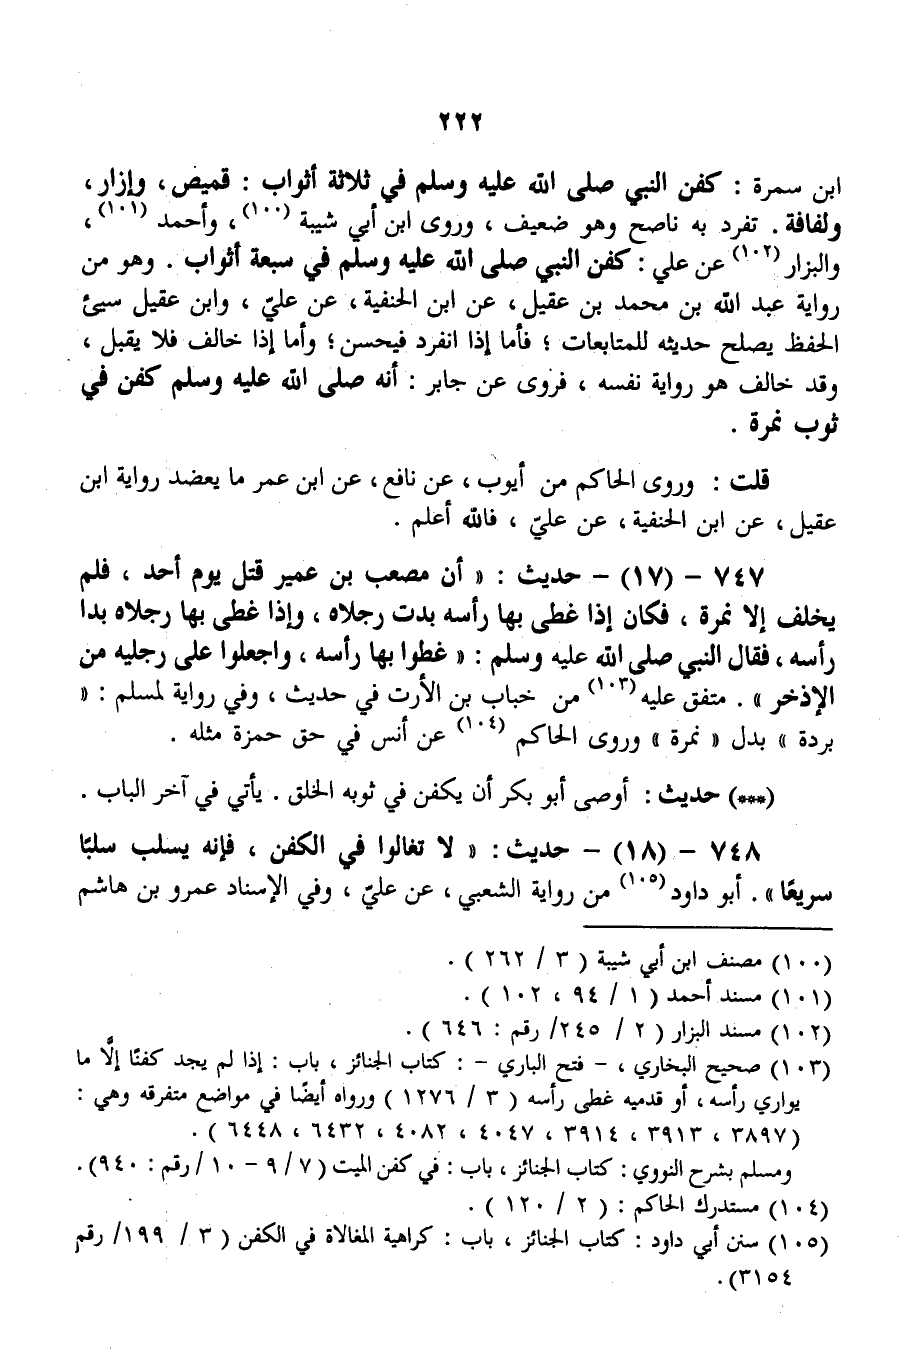 ٢٢٢
ابن سمرة : كفن النبي صلى الله عليه وسلم في ثلاثة أثواب : قميص ، وإزار ،
ولفافة . تفرد به ناصح وهو ضعيف ، وروى ابن أبي شيبة (١٠٠) ، وأحمد (١٠١) ،
والبزار (١٠٢) عن علي : كفن النبي صلى الله عليه وسلم في سبعة أثواب . وهو من
رواية عبد الله بن محمد بن عقيل ، عن ابن الحنفية ، عن عليّ ، وابن عقيل سيئ
الحفظ يصلح حديثه للمتابعات ؛ فأما إذا انفرد فيحسن ؛ وأما إذا خالف فلا يقبل ،
وقد خالف هو رواية نفسه ، فروى عن جابر : أنه صلى الله عليه وسلم كفن في
ثوب نمرة .
قلت : وروى الحاكم من أيوب ، عن نافع ، عن ابن عمر ما يعضد رواية ابن
عقيل ، عن ابن الحنفية ، عن عليّ ، فالله أعلم .
٧٤٧ - (١٧) - حديث : « أن مصعب بن عمير قتل يوم أحد ، فلم
يخلف إلا نمرة ، فكان إذا غطى بها رأسه بدت رجلاه ، وإذا غطى بها رجلاه بدا
رأسه ، فقال النبي صلى الله عليه وسلم : « غطوا بها رأسه ، واجعلوا على رجليه من
الإذخر » . متفق عليه (١٠٣) من خباب بن الأرت في حديث ، وفي رواية لمسلم : «
بردة » بدل « نمرة » وروى الحاكم (١٠٤) عن أنس في حق حمزة مثله .
(***) حديث : أوصى أبو بكر أن يكفن في ثوبه الخلق . يأتي في آخر الباب .
٧٤٨ - (١٨) - حديث : « لا تغالوا في الكفن ، فإنه يسلب سلبًا
سريعًا » . أبو داود (١٠٥) من رواية الشعبي ، عن عليّ ، وفي الإسناد عمرو بن هاشم
(١٠٠) مصنف ابن أبي شيبة ( ٣ / ٢٦٢ ) .
(١٠١) مسند أحمد ( ١ / ٩٤ ، ١٠٢ ) .
(١٠٢) مسند البزار ( ٢ / ٢٤٥/ رقم : ٦٤٦ ) .
(١٠٣) صحيح البخاري ، - فتح الباري - : كتاب الجنائز ، باب : إذا لم يجد كفنًا إلَّا ما
يواري رأسه ، أو قدميه غطى رأسه ( ٣ / ١٢٧٦ ) ورواه أيضًا في مواضع متفرقه وهي :
(٣٨٩٧ ، ٣٩١٣ ، ٣٩١٤ ، ٤٠٤٧ ، ٤٠٨٢ ، ٦٤٣٢ ، ٦٤٤٨ ) .
ومسلم بشرح النووي : كتاب الجنائز ، باب : في كفن الميت ( ٧ / ٩ - ١٠ /رقم : ٩٤٠).
(١٠٤) مستدرك الحاكم : ( ٢ / ١٢٠ ) .
(١٠٥) سنن أبي داود : كتاب الجنائز ، باب : كراهية المغالاة في الكفن ( ٣ / ١٩٩/ رقم
٣١٥٤).